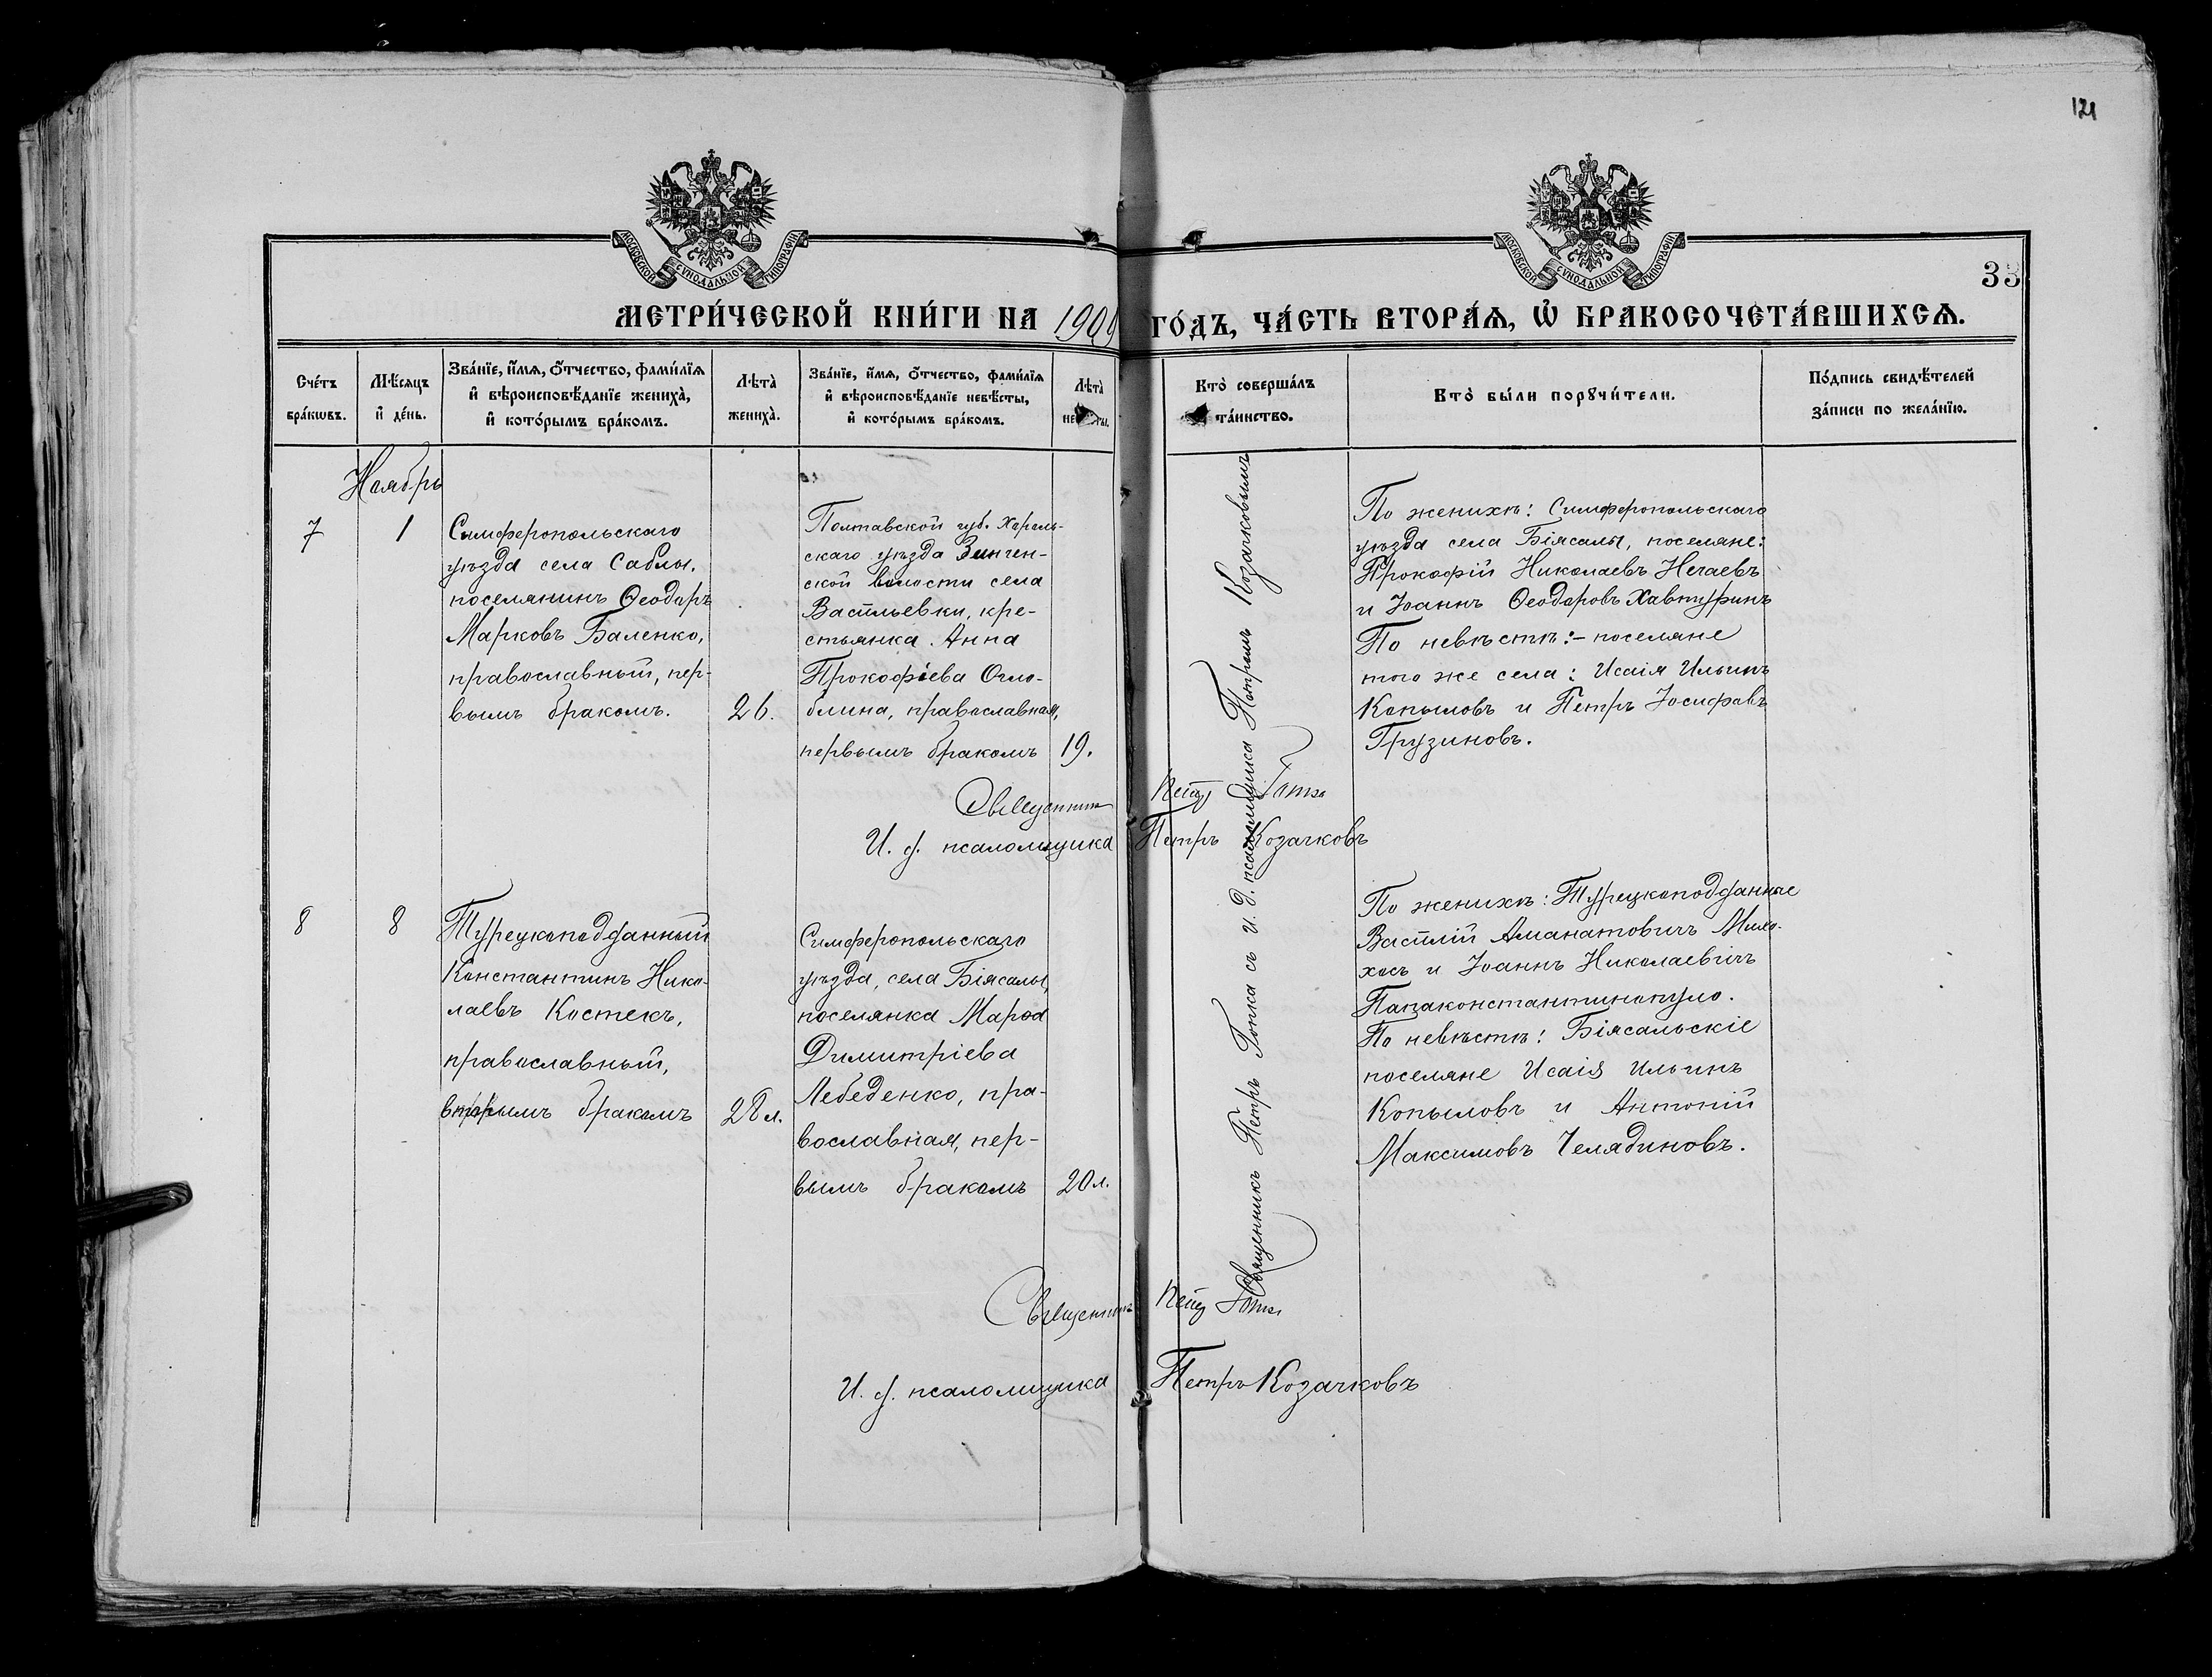 121
МОСКОВСКОЙ СѴНОДАЛЬНОЙ ТИПОГРАФІИ
МОСКОВСКОЙ СѴНОДАЛЬНОЙ ТИПОГРАФІИ
33
МЕТРИ́ЧЕСКОЙ КНИ́ГИ НА 1909 ГО́ДЪ, ЧА́СТЬ ВТОРА́Ѧ, Ѽ БРАКОСОЧЕТА́ВШИХСѦ.
Сче́тъ
бра́кѡвъ.
Мѣ́сѧцъ
и҆ де́нь.
Зва́нїе, и҆́мѧ, о҆́тчество, фами́лїѧ
и҆ вѣроисповѣ́данїе жениха̀,
и҆ кото́рымъ бра́комъ.
Лѣта̀
жениха̀.
Зва́нїе, и҆́мѧ, о҆́тчество, фами́лїѧ
и҆ вѣроисповѣ́данїе невѣ́сты,
и҆ кото́рымъ бра́комъ.
Лѣта̀
Кто̀ соверша́лъ
та́инство.
Кто̀ бы́ли порꙋчи́тели.
По́дпись свидѣ́телей
за́писи по жела́нїю.
Ноябрь
7
1
Симферопольскаго
уѣзда села Саблы.
поселянинъ Ѳеодоръ
Марковъ Баленко,
православный, пер-
вымъ бракомъ.
26.
Полтавской губ. Хороль-
скаго уѣзда Зинчен-
ской волости села
Васильевки, кре-
стьянка Анна
Прокофіева Огло-
блина, православная,
первымъ бракомъ
19.
Священникъ Петръ Гопка съ и. д. псаломщика Петромъ Козачковымъ
По женихѣ: Симферопольскаго
уѣзда села Біясалы, поселяне:
Прокофій Николаевъ Нечаевъ
и Іоаннъ Ѳеодоровъ Хавтуринъ
По невѣстѣ:– поселяне
того же села: Исаія Ильинъ
Копыловъ и Петръ Іосифовъ
Грузиновъ.
Священникъ Петръ Гопка
И. д. псаломщика Петръ Козачковъ
8
8
Турецкоподданный
Константинъ Нико-
лаевъ Костекъ,
православный,
вторымъ бракомъ
28 л.
Симферопольскаго
уѣзда, села Біясалы,
поселянка Марѳа
Димитріева
Лебеденко, пра-
вославная, пер-
вымъ бракомъ
20 л.
По женихѣ: Турецкоподданные
Василій Аманатовичъ Михо-
хосъ и Іоаннъ Николаевичъ
Папаконстантинопуло.
По невѣстѣ: Біясальскіе
поселяне Исаія Ильинъ
Копыловъ и Антоній
Максимовъ Челядиновъ.
Священникъ Петръ Гопка
И. д. псаломщика Петръ Козачковъ